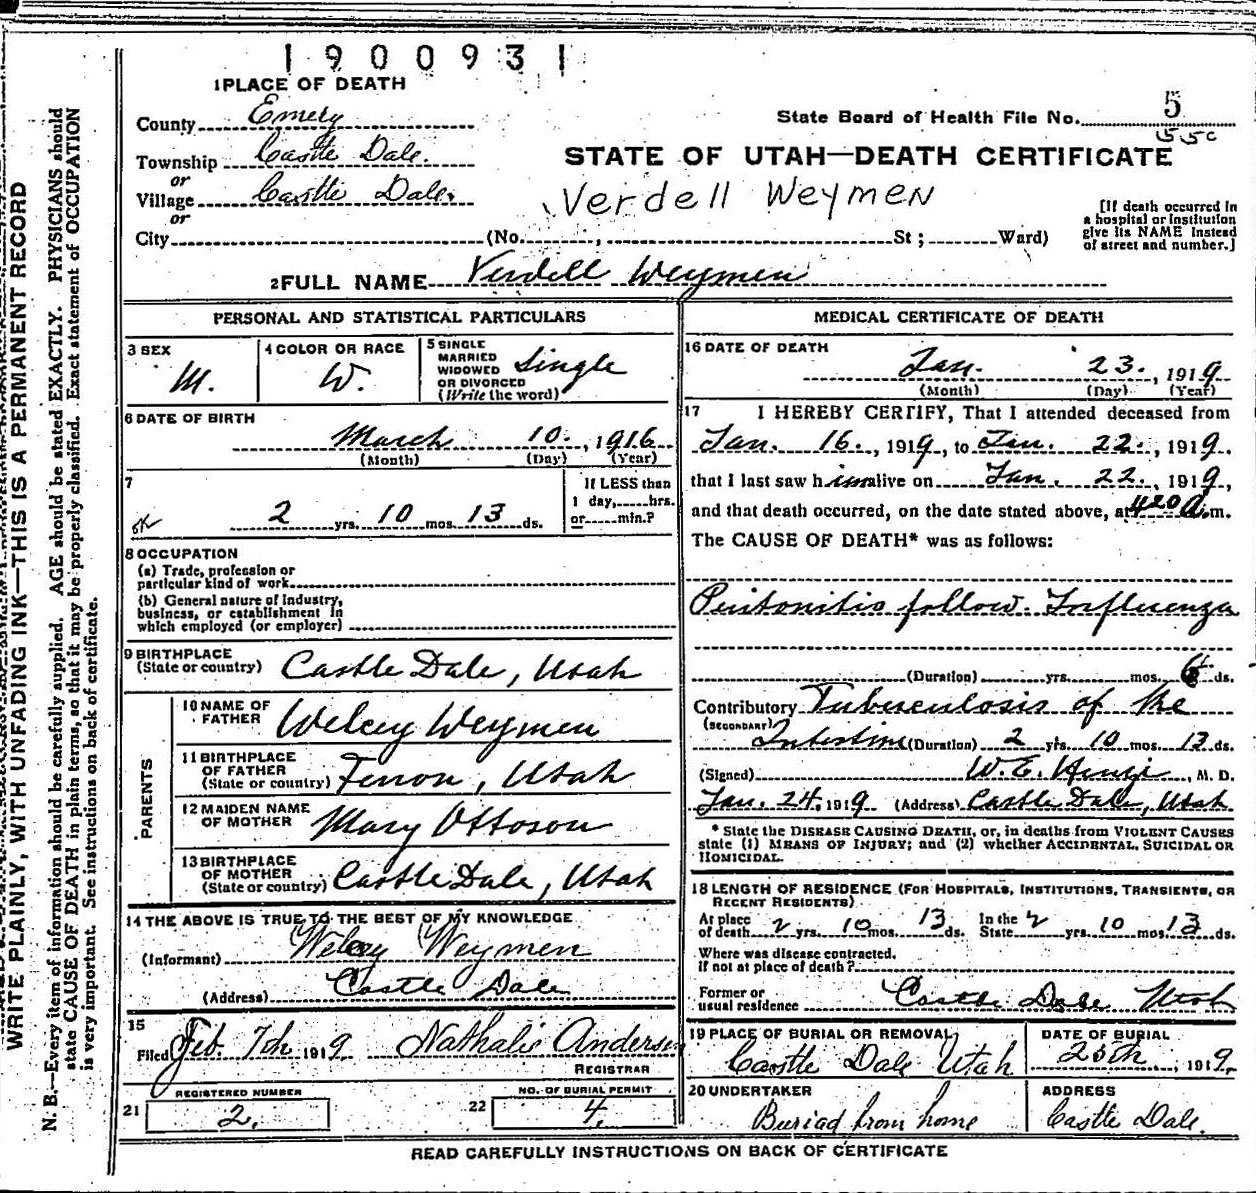 1900931
1 PLACE OF DEATH
County Emery
State Board of Health File No. 5
Township Castle Dale.
or
STATE OF UTAH—DEATH CERTIFICATE
Village Castle Dale.
or
Verdell Weymen
City (No. , St; Ward)
[If death occurred in
a hospital or institution
give its NAME instead
of street and number.]
2 FULL NAME Verdell Weymen
PERSONAL AND STATISTICAL PARTICULARS
3 SEX
M.
4 COLOR OR RACE
W.
5 SINGLE
MARRIED
WIDOWED
OR DIVORCED
(Write the word)
Single
6 DATE OF BIRTH
March 10. , 1916
(Month) (Day) (Year)
7
2 yrs. 10 mos. 13 ds.
If LESS than
1 day, hrs.
or min.?
8 OCCUPATION
(a) Trade, profession or
particular kind of work
(b) General nature of industry,
business, or establishment in
which employed (or employer)
9 BIRTHPLACE
(State or country) Castle Dale, Utah
PARENTS
10 NAME OF
FATHER Welcey Weymen
11 BIRTHPLACE
OF FATHER
(State or country) Ferron, Utah
12 MAIDEN NAME
OF MOTHER Mary Ottoson
13 BIRTHPLACE
OF MOTHER
(State or country) Castle Dale, Utah
14 THE ABOVE IS TRUE TO THE BEST OF MY KNOWLEDGE
(Informant) Welcey Weymen
(Address) Castle Dale
15
Filed Feb. 7th 1919 Nathalie Andersen
REGISTRAR
REGISTERED NUMBER
21 2.
NO. OF BURIAL PERMIT
22 4.
MEDICAL CERTIFICATE OF DEATH
16 DATE OF DEATH
Jan. 23. , 1919
(Month) (Day) (Year)
17 I HEREBY CERTIFY, That I attended deceased from
Jan. 16. , 1919, to Jan. 22. , 1919.
that I last saw him alive on Jan. 22. , 1919,
and that death occurred, on the date stated above, at 420 a.m.
The CAUSE OF DEATH* was as follows:
Peritonitis follow. Influenza
(Duration) yrs. mos. 6 ds.
Contributory Tuberculosis of the
(SECONDARY)
Intestine (Duration) 2 yrs. 10 mos. 13 ds.
(Signed) W. E. , M. D.
Jan. 24. 1919 (Address) Castle Dale, Utah
* State the DISEASE CAUSING DEATH, or, in deaths from VIOLENT CAUSES
state (1) MEANS OF INJURY; and (2) whether ACCIDENTAL, SUICIDAL OR
HOMICIDAL.
18 LENGTH OF RESIDENCE (FOR HOSPITALS, INSTITUTIONS, TRANSIENTS, OR
RECENT RESIDENTS)
At place
of death 2 yrs. 10 mos. 13 ds.
In the
State 2 yrs. 10 mos. 13 ds.
Where was disease contracted,
if not at place of death?
Former or
usual residence Castle Dale Utah
19 PLACE OF BURIAL OR REMOVAL
Castle Dale Utah
DATE OF BURIAL
25th , 1919.
20 UNDERTAKER
Buriad from home
ADDRESS
Castle Dale.
READ CAREFULLY INSTRUCTIONS ON BACK OF CERTIFICATE
WRITE PLAINLY, WITH UNFADING INK—THIS IS A PERMANENT RECORD
N. B.—Every item of information should be carefully supplied. AGE should be stated EXACTLY. PHYSICIANS should
state CAUSE OF DEATH in plain terms, so that it may be properly classified. Exact statement of OCCUPATION
is very important. See instructions on back of certificate.